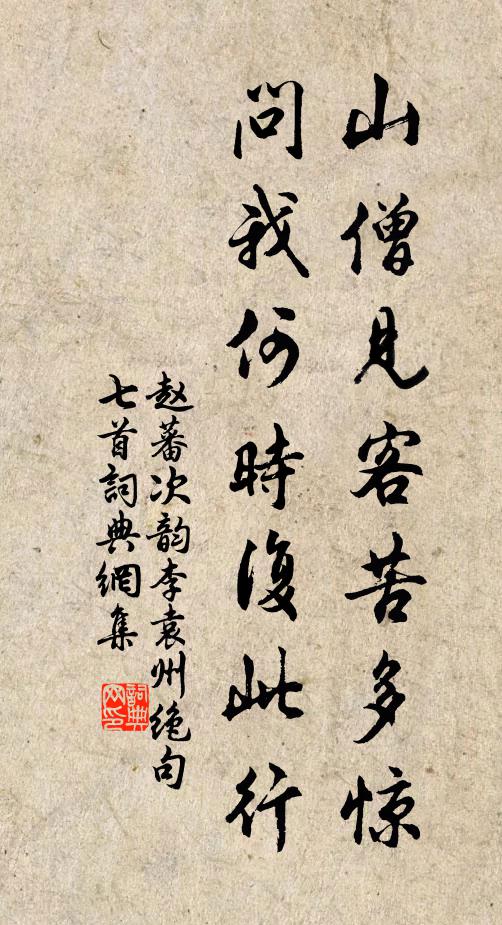 山僧見客苦多惊
問我何時復此行
赵蕃次韵李袁州绝句
七首詞典網集
詞典
网印